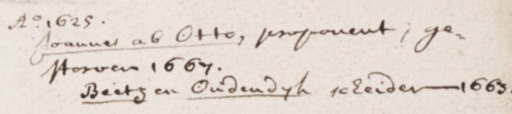 Ao. 1625.
Joannes ab Otto, proponent, ge=
storven 1667.
Beets en Oudendyk scheiden 1663.